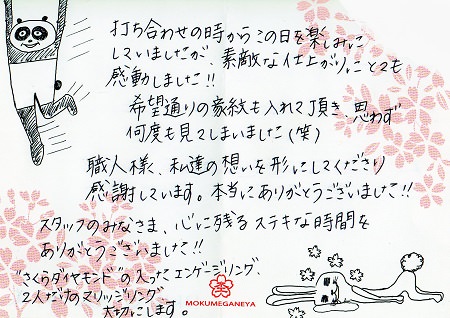 打ち合わせの時からこの日を楽しみに
していましたが、素敵な仕上がりにとても
感動しました!!
希望通りの家紋も入れて頂き、思わず
何度も見てしまいました(笑)
職人様、私達の想いを形にしてくださり
感謝しています。本当にありがとうございました!!
スタッフのみなさま、心に残るステキな時間を
ありがとうございました!!
"さくらダイヤモンド"の入ったエンゲージリング、
2人だけのマリッジリング
大切にします。
MOKUMEGANEYA